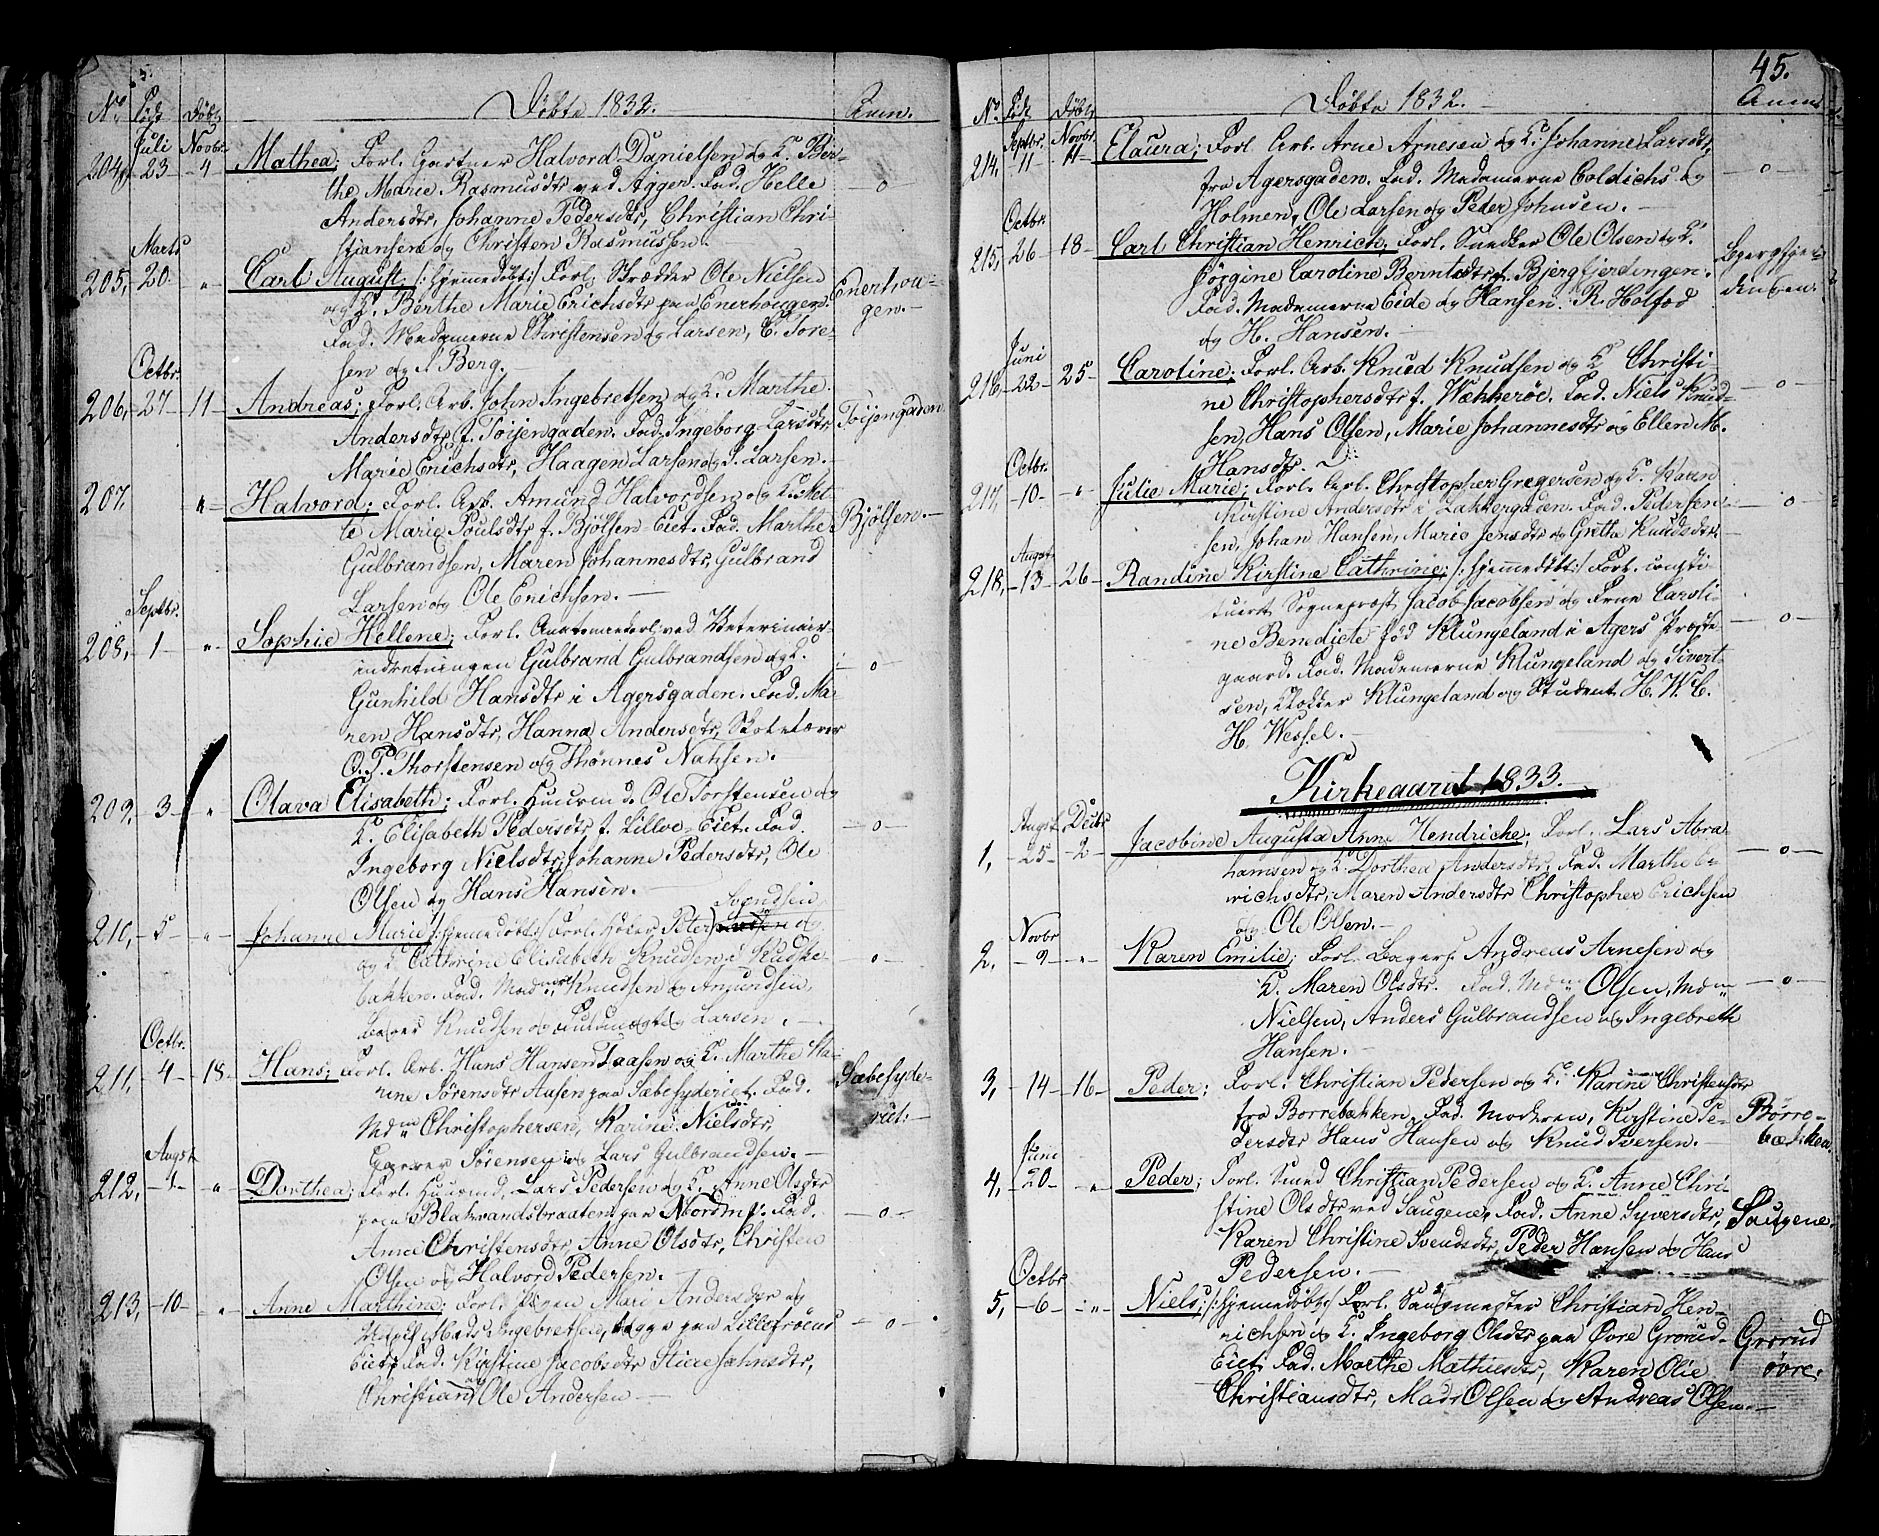 Døbte 1832.
No. Født Døbt Anm.
Juli Novbr.
204, 23 4 Mathea; Forl. Gartner Halvord Danielsen og K. Ber-
the Marie Rasmusdtr ved Agger. Fad. Helle
Andersdtr, Johanne Pedersdtr, Christian Chri-
stiansen og Christen Rasmussen.
Marts
205, 20 " Carl August; /:hjemmedøbt:/ Forl. Skrædder Ole Nielsen
og K. Berthe Marie Erichsdtr paa Enerhougen. Enerhou-
Fad. Madamerne Christensen og Larsen, C. Tore- gen.
sen og Berg.
Octbr.
206, 27 11 Andreas; Forl. Arb. John Ingebretsen og K. Marthe
Andersdtr f. Tøijengaden. Fad. Ingeborg Larsdtr Tøijengaden
Marie Erichsdtr, Haagen Larsen og Larsen.
207, " Halvord; Forl. Arb. Amund Halvordsen og K. Met-
te Marie Poulsdtr f. Bjølsen Eiet. Fad. Marthe Bjølsen.
Gulbrandsen, Maren Johannesdtr, Gulbrand
Larsen og Ole Erichsen.
Septbr.
208, 1 " Sophie Hellene; Forl. ved Veterinair-
indretningen Gulbrand Gulbrandsen og K.
Gunhild Hansdtr i Agersgaden. Fad. Ma-
ren Hansdtr, Hanna Andersdtr, Skolelærer
O. P. Thorstensen og Thønnes Nansen.
209, 3 " Olava Elisabeth; Forl. Huusmd. Ole Torstensen og
K. Elisabeth Pedersdtr f. Lilloe-Eiet. Fad.
Ingeborg Nielsdtr, Johanne Pedersdtr, Ole
Olsen og Hans Hansen.
Svendsen
210, 5 " Johanne Marie /:hjemmedøbt:/ Forl. Peter og
og K. Cathrine Elisabeth Knudsen i
bakken. Fad. Madmme Knudsen og Amundsen,
Knudsen og Larsen.
Octbr.
211, 4 18 Hans; Forl. Arb. Hans Hansen og K. Marthe Ma-
rine Sørensdtr Aasen paa Sæbesyderiet. Fad. Sæbesyde-
Mdm Christophersen, Karine Nielsdtr, riet.
Sørensen og Lars Gulbrandsen.
Augst
212, 4 " Dorthea; Forl. Huusmd. Lars Pedersen og K. Anne Olsdtr
paa Blakvandsbraaten paa Nordm. Fad.
Anne Christensdtr, Anne Olsdtr, Christen
Olsen og Halvord Pedersen.
213, 10 " Anne Marthine; Forl. Pigen Mari Andersdtr og
Mads Ingebretsen, begge paa Lillefrøens
Eiet. Fad. Kirstine Jacobsdtr, Johnsdtr,
Christian og Ole Andersen
45.
Døbte 1832.
No. Født Døbt Anm.
Septbr. Novbr.
214, 11 11 Elaura; Forl. Arb. Arne Arnesen og K. Johanne Larsdtr,
fra Agersgaden. Fad. Madamerne Coldichs og
Holmen, Ole Larsen og Peder Johnsen.
Octbr.
215, 26 18 Carl Christian Henrich; Forl. Snedker Ole Olsen og K.
Jørgine Caroline Berntsdtr f. Bjergfjerdingen. Bjergfjer-
Fad. Madamerne Eide og Hansen. R. Holfod dingen.
og H. Hansen.
Juni
216, 22 25 Caroline; Forl. Arb. Knud Knudsen og K. Christi
ne Christophersdtr f. Wækkerøe. Fad. Niels Knud-
sen, Hans Olsen, Marie Johannesdtr og Ellen M.
Hansdtr.
Octbr.
217, 10 " Julie Marie; Forl. Arb. Christopher Gregersen og K. Karen
Kirstine Andersdtr i Lakkergaden. Fad. Peder
sen, Johan Hansen, Marie Jensdtr og Grethe Knudsdtr.
Augst
218, 13 26 Randine Kirstine Cathrine; /:hjemmedøbt:/ Forl. consti-
tuert Sognepræst Jacob Jacobsen og Frue Caroli-
ne Benedicte fød Klungeland i Agers Præste-
gaard. Fad. Madamerne Klungeland og Sivert-
sen, Klokker Klungeland og Student H. W. C.
H. Wessel.
Kirkeaaret 1833.
Augst Decbr
1, 25 2 Jacobine Augusta Anne Hendriche; Forl. Lars Abra-
hamsen og K. Dorthea Andersdtr, Fad. Marthe E-
richsdtr, Maren Andersdtr Christopher Erichsen
og Ole Olsen.
Novbr
2, 9 " Karen Emilie; Forl. Bagers. Andreas Arnesen og
K. Maren Olsdtr. Fad. Mdm Olsen, Mdm
Nielsen, Anders Gulbrandsen og Ingebreth
Hansen.
3, 14 16 Peder; Forl. Christian Pedersen og K. Karine Christensdtr
fra Borrebakken. Fad. Moderen, Kirstine Pe- Borre-
dersdtr Hans Hansen og Knud Iversen. bakken
Juni
4, 20 " Peder; Forl. Smed Christian Pedersen og K. Anne Chri-
stine Olsdtr ved Saugene, Fad. Anne Syversdtr, Saugene.
Karen Christine Svendsdtr, Peder Hansen og Hans
Pedersen.
Octbr
5, 6 " Niels; /:hjemmedøbt:/ Forl. Saugmester Christian Hen-
richsen og K. Ingeborg Olsdtr paa Øvre Grorud- Grorud
Eiet, Fad. Marthe Mathisdtr, Karen Olie øvre.
Christiansdtr, Mads Olsen og Andreas Olsen.